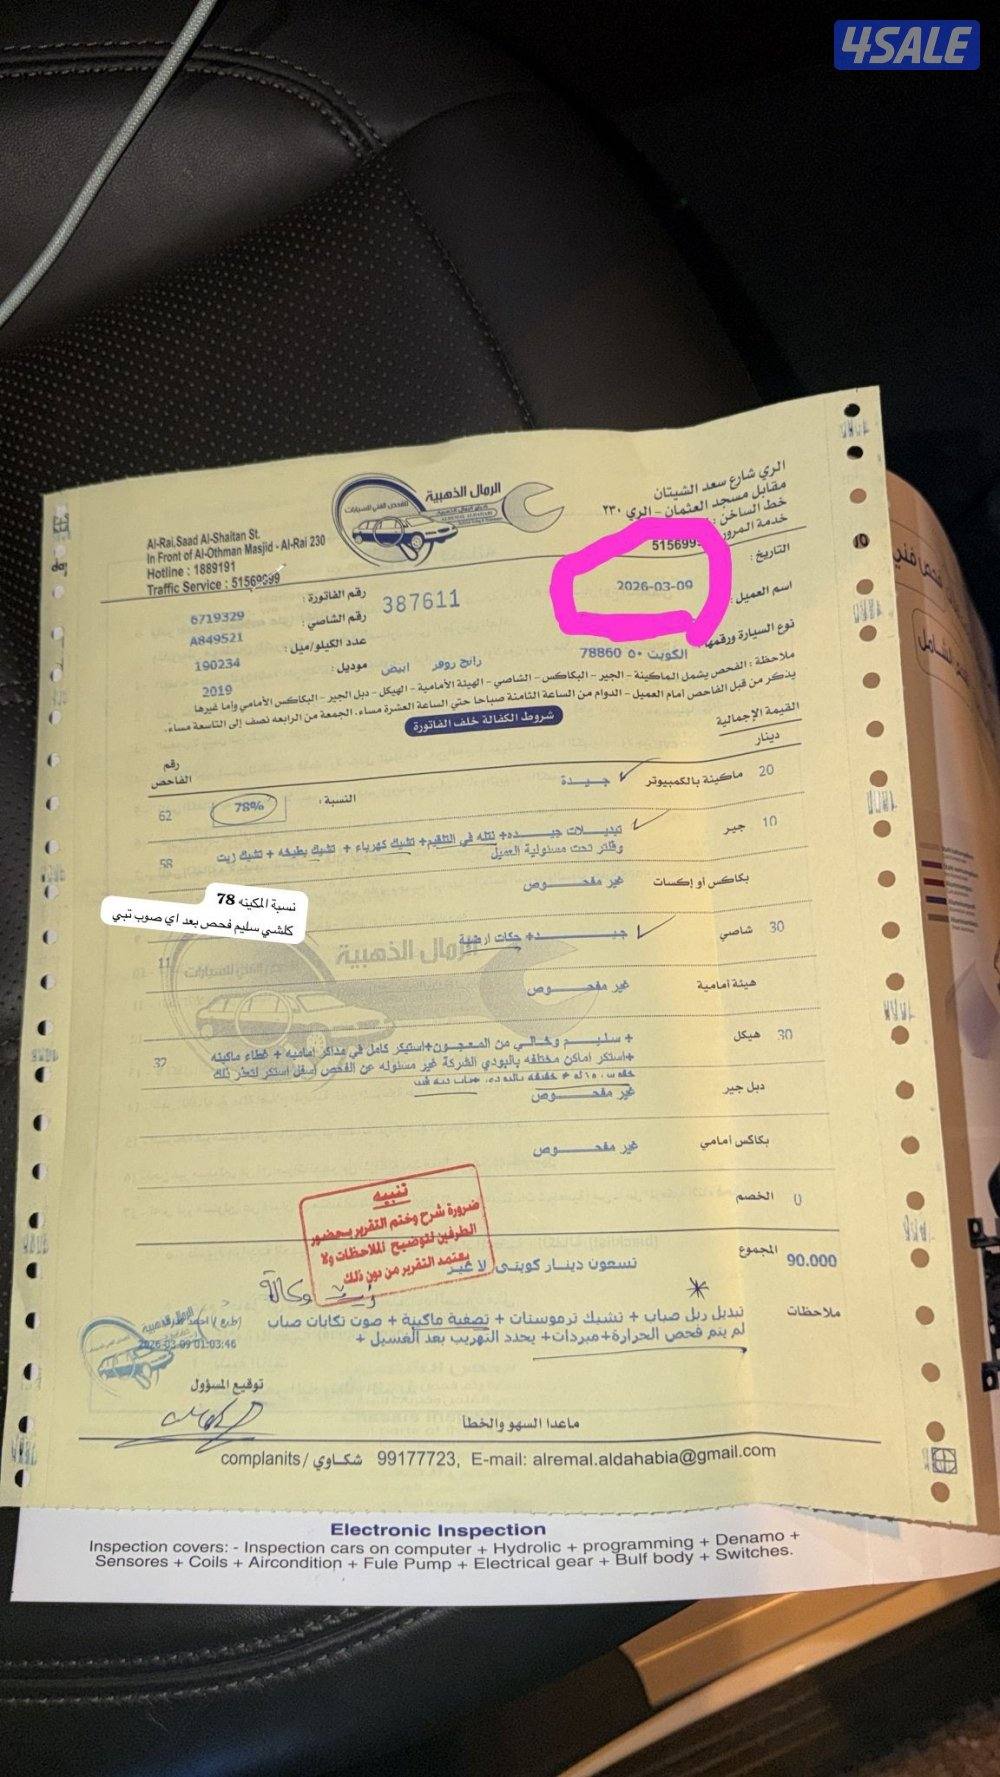 4SALE
الري شارع سعد الشيتان
مقابل مسجد العثمان - الري ٢٣٠
خط الساخن :
خدمة المرور
5156999
Al-Rai,Saad Al-Shaitan St.
In Front of Al-Othman Masjid - Al-Rai 230
Hotline : 1889191
Traffic Service : 51569999
الرمال الذهبية
للفحص الفني للسيارات
التاريخ :
2026-03-09
اسم العميل :
نوع السيارة ورقمها
الكويت ٥٠ 78860
رانج روفر ابيض
387611
رقم الفاتورة :
6719329
رقم الشاصي :
A849521
عدد الكيلو/ميل :
190234
موديل :
2019
ملاحظة : الفحص يشمل الماكينة - الجير - البكاكس - الشاصي - الهيئة الأمامية - الهيكل - دبل الجير - البكاكس الأمامي وأما غيرها
يذكر من قبل الفاحص امام العميل - الدوام من الساعة الثامنة صباحا حتي الساعة العشرة مساء. الجمعة من الرابعه نصف إلى التاسعة مساء.
شروط الكفالة خلف الفاتورة
القيمة الإجمالية
دينار
رقم الفاحص
20 ماكينة بالكمبيوتر جيدة
النسبة : 78% 62
10 جير تبديلات جيده+ نتله في التلقيم+ تشيك كهرباء + تشيك بطيخه + تشيك زيت
وفلتر تحت مسئولية العميل 58
بكاكس أو إكسات غير مفحوص
نسبة المكينه 78
كلشي سليم فحص بعد اي صوب تبي
30 شاصي جيد+ حكات ارضية 11
هيئة أمامية غير مفحوص
30 هيكل + سليم وخالي من المعجون+استيكر كامل في مداكر اماميه + غطاء ماكينه
+استكر اماكن مختلفه بالبودي الشركة غير مسئوله عن الفحص اسفل استكر لتعذر ذلك
دبل جير غير مفحوص
بكاكس أمامي غير مفحوص
الخصم 0
تنبيه
ضرورة شرح وختم التقرير بحضور
الطرفين لتوضيح الملاحظات ولا
يعتمد التقرير من دون ذلك
المجموع 90.000
تسعون دينار كويتي لا غير
ملاحظات تبديل ربل صباب + تشيك ترموستات + تصفية ماكينة + صوت تكايات صباب
لم يتم فحص الحرارة+مبردات+ يحدد التهريب بعد الغسيل +
2026-03-09 01:03:46
توقيع المسؤول
ماعدا السهو والخطأ
complanits / شكاوي 99177723, E-mail: alremal.aldahabia@gmail.com
Electronic Inspection
Inspection covers: - Inspection cars on computer + Hydrolic + programming + Denamo +
Sensores + Coils + Aircondition + Fule Pump + Electrical gear + Bulf body + Switches.